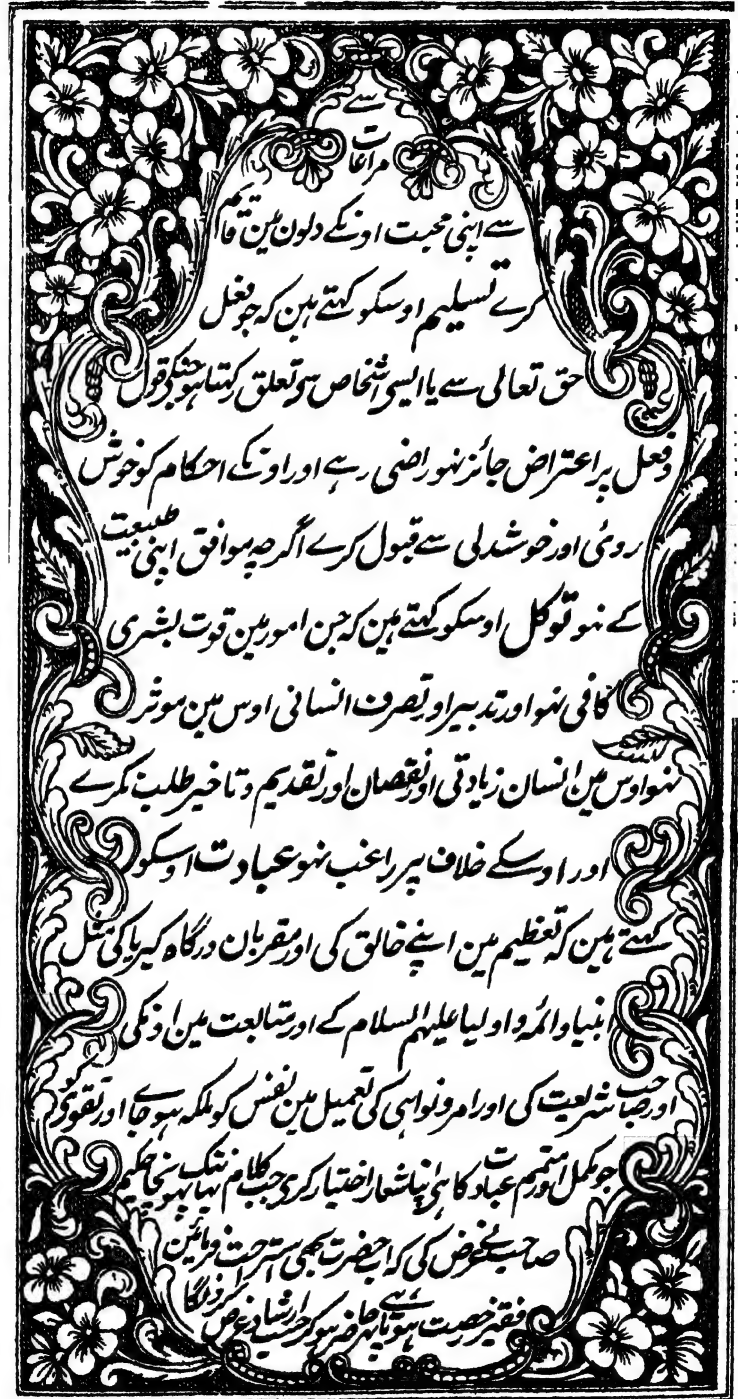 مراعات سے
سے اپنی محبت اونکے دلون مین قائم
کرے تسلیم اوسکو کہتے ہین کہ جو فعل
حق تعالی سے یا ایسی اشخاص سی تعلق رکہتا ہو جنکی قول
و فعل پر اعتراض جائز نہو راضی رہے اور اونکے احکام کو خوش
روئی اور خوشدلی سے قبول کرے اگرچہ موافق اپنی طبیعت
کے نہو توکل اوسکو کہتے ہین کہ جن امور مین قوت بشری
کافی نہو اور تدبیر اور تصرف انسانی اوس مین موثر
نہو اوس مین انسان زیادتی اور نقصان اور تقدیم و تاخیر طلب نکرے
اور اوسکے خلاف پر راغب نہو عبادت اوسکو
کہتے ہین کہ تعظیم مین اپنے خالق کی اور مقربان درگاہ کبریا کی مثل
انبیا و ائمہ و اولیا علیہم السلام کے اور متابعت مین اونکی
اور صاحب شریعت کی اور امر و نواہی کی تعمیل مین نفس کو ملکہ ہو جاے اور تقوی کو
جو مکمل اور متمم عبادت کا ہی اپنا شعار اختیار کری جب کلام یہانتک پہونچا حکیم
صاحب نے عرض کی کہ اب حضرت بھی استراحت فرمائین
فقیر رخصت ہوتا ہے پھر حاضر ہو کر حسب ارشاد عرض کرونگا